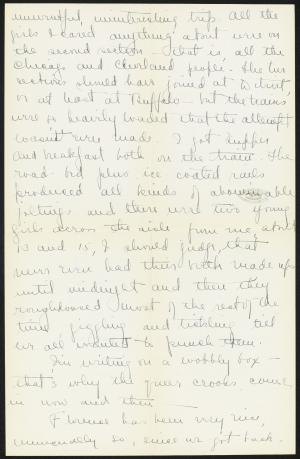 uneventful, uninteresting trip. All the
girls I cared anything about were on
the second section - that is all the
Chicago and Cleveland people. The two
sections should have joined at Detroit
or at least at Buffalo - but the trains
were so heavily loaded that the attempt
wasn't even made. I got supper
and breakfast both on the train. The
road-bed plus ice coated rails
produced all kinds of abominable
joltings and there were two young
girls across the aisle from me, about
13 and 15, I should judge, that
never even had their berth made up
until midnight and then they
roughhoused most of the rest of the
time, giggling and tickling till
we all wanted to punch them.
I'm writing on a wobbly box -
that's why the queer crooks come
in now and then -
Florence has been very nice,
unusually so, since we got back.